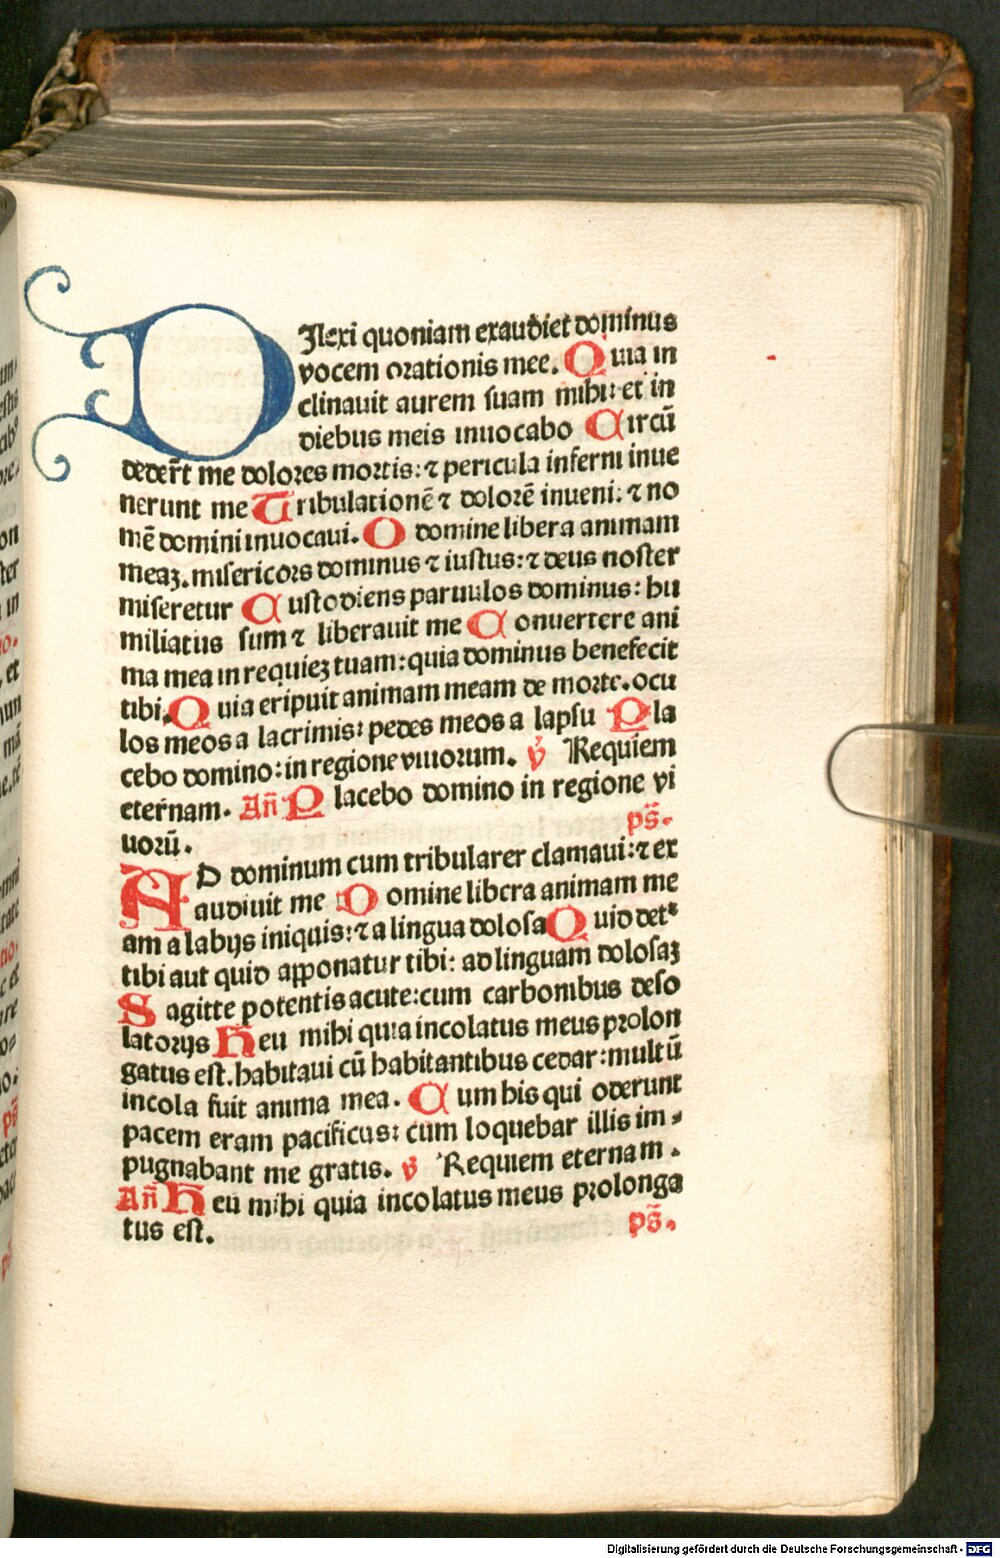 DJlexi quoniam exaudiet dominus
vocem orationis mee. Quia in
clinauit aurem suam mihi: et in
diebus meis inuocabo Circũ
dederũt me dolores mortis: ⁊ pericula inferni inue
nerunt me Tribulationẽ ⁊ dolorẽ inueni: ⁊ no
mẽ domini inuocaui. O domine libera animam
meaꝫ. misericors dominus ⁊ iustus: ⁊ deus noster
miseretur Custodiens paruulos dominus: hu
miliatus sum ⁊ liberauit me Conuertere ani
ma mea in requieꝫ tuam: quia dominus benefecit
tibi. Quia eripuit animam meam de morte. ocu
los meos a lacrimis: pedes meos a lapsu Pla
cebo domino: in regione viuorum. ℣ Requiem
eternam. Añ Placebo domino in regione vi
uorũ. ps̃.
AD dominum cum tribularer clamaui: ⁊ ex
audiuit me Domine libera animam me
am a labijs iniquis: ⁊ a lingua dolosa Quid det᷑
tibi aut quid apponatur tibi: ad linguam dolosaꝫ
Sagitte potentis acute: cum carbonibus deso
latorijs Heu mihi quia incolatus meus prolon
gatus est. habitaui cũ habitantibus cedar: multũ
incola fuit anima mea. Cum his qui oderunt
pacem eram pacificus: cum loquebar illis im⸗
pugnabant me gratis. ℣ Requiem eternam.
Añ Heu mihi quia incolatus meus prolonga
tus est. ps̃.
Digitalisierung gefördert durch die Deutsche Forschungsgemeinschaft - DFG